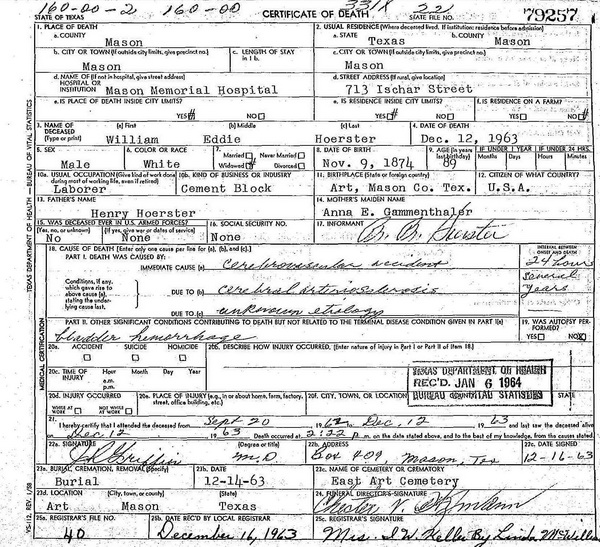 160-00-2 160-00 331X 22
STATE OF TEXAS CERTIFICATE OF DEATH STATE FILE NO. 79257
1. PLACE OF DEATH 2. USUAL RESIDENCE (Where deceased lived. If institution: residence before admission)
a. COUNTY a. STATE b. COUNTY
Mason Texas Mason
b. CITY OR TOWN (If outside city limits, give precinct no.) c. LENGTH OF STAY in 1 b. c. CITY OR TOWN (If outside city limits, give precinct no.)
Mason Mason
d. NAME OF (If not in hospital, give street address) HOSPITAL OR INSTITUTION d. STREET ADDRESS (If rural, give location)
Mason Memorial Hospital 713 Ischar Street
e. IS PLACE OF DEATH INSIDE CITY LIMITS? e. IS RESIDENCE INSIDE CITY LIMITS? f. IS RESIDENCE ON A FARM?
YES NO YES NO YES NO
3. NAME OF DECEASED (Type or print) (a) First (b) Middle (c) Last 4. DATE OF DEATH
William Eddie Hoerster Dec. 12, 1963
5. SEX 6. COLOR OR RACE 7. Married Never Married Widowed Divorced 8. DATE OF BIRTH 9. AGE (In years last birthday) IF UNDER 1 YEAR IF UNDER 24 HRS.
Months Days Hours Min.
Male White Nov. 9, 1874 89
10a. USUAL OCCUPATION (Give kind of work done during most of working life, even if retired) 10b. KIND OF BUSINESS OR INDUSTRY 11. BIRTHPLACE (State or foreign country) 12. CITIZEN OF WHAT COUNTRY?
Laborer Cement Block Art, Mason Co. Tex. U.S.A.
13. FATHER'S NAME 14. MOTHER'S MAIDEN NAME
Henry Hoerster Anna E. Gammenthaler
15. WAS DECEASED EVER IN U.S. ARMED FORCES? 16. SOCIAL SECURITY NO. 17. INFORMANT
(Yes, no, or unknown) (If yes, give war or dates of service)
No None None
18. CAUSE OF DEATH [Enter only one cause per line for (a), (b), and (c).] INTERVAL BETWEEN ONSET AND DEATH
PART I. DEATH WAS CAUSED BY:
IMMEDIATE CAUSE (a) cerebrovascular accident 24 hours
Conditions, if any, which gave rise to above cause (a), stating the underlying cause last.
DUE TO (b) cerebral arteriosclerosis several years
DUE TO (c) unknown etiology
PART II. OTHER SIGNIFICANT CONDITIONS CONTRIBUTING TO DEATH BUT NOT RELATED TO THE TERMINAL DISEASE CONDITION GIVEN IN PART I(a) 19. WAS AUTOPSY PERFORMED?
bladder hemorrhage YES NO
20a. ACCIDENT SUICIDE HOMICIDE 20b. DESCRIBE HOW INJURY OCCURRED. (Enter nature of injury in Part I or Part II of Item 18.)
20c. TIME OF INJURY Hour a.m. p.m. Month Day Year
TEXAS DEPARTMENT OF HEALTH
REC'D. JAN 6 1964
BUREAU OF VITAL STATISTICS
20d. INJURY OCCURRED WHILE AT WORK NOT WHILE AT WORK 20e. PLACE OF INJURY (e.g., in or about home, farm, factory, street, office building, etc.) 20f. CITY, TOWN, OR LOCATION COUNTY STATE
21. I hereby certify that I attended the deceased from Sept 20 1962 Dec. 12 1963 and last saw the deceased alive
on Dec. 12 1963 Death occurred at 2:22 p.m. on the date stated above, and to the best of my knowledge, from the causes stated.
22a. SIGNATURE (Degree or title) 22b. ADDRESS 22c. DATE SIGNED
M.D. Box 409, Mason, Tex 12-16-63
23a. BURIAL, CREMATION, REMOVAL (Specify) 23b. DATE 23c. NAME OF CEMETERY OR CREMATORY
Burial 12-14-63 East Art Cemetery
23d. LOCATION (City, town, or county) (State) 24. FUNERAL DIRECTOR'S SIGNATURE
Art Mason Texas Chester V.
25a. REGISTRAR'S FILE NO. 25b. DATE REC'D BY LOCAL REGISTRAR 25c. REGISTRAR'S SIGNATURE
40 December 16, 1963 Mrs. I. W. Keller By Linda McWilliams
TEXAS DEPARTMENT OF HEALTH — BUREAU OF VITAL STATISTICS
MEDICAL CERTIFICATION
VS-112, REV. 1/58